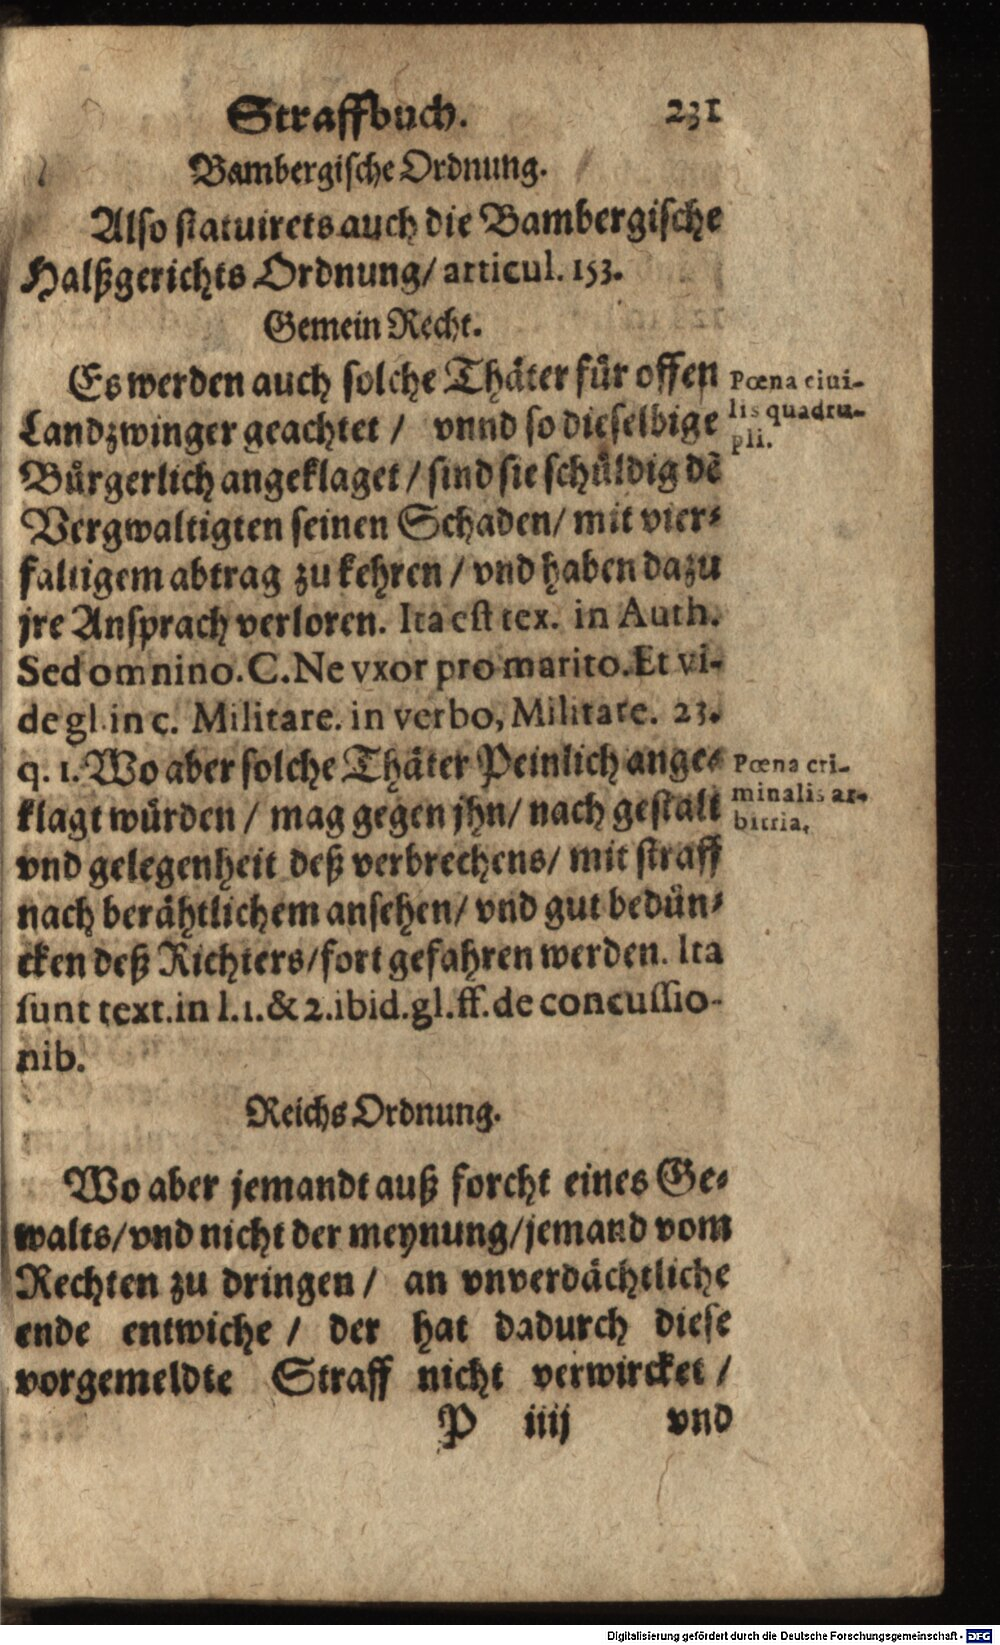 Straffbuch. 231
Bambergische Ordnung.
Also statuirets auch die Bambergische
Halßgerichts Ordnung/ articul. 153.
Gemein Recht.
Es werden auch solche Thäter für offen
Landzwinger geachtet / vnnd so dieselbige
Bürgerlich angeklaget / sind sie schüldig dẽ
Vergwaltigten seinen Schaden/ mit vier-
faltigem abtrag zu kehren / vnd haben dazu
jre Ansprach verloren. Ita est tex. in Auth.
Sed omnino. C. Ne vxor pro marito. Et vi-
de gl. in c. Militare. in verbo, Militare. 23.
q. 1. Wo aber solche Thäter Peinlich ange-
klagt würden / mag gegen jhn/ nach gestalt
vnd gelegenheit deß verbrechens/ mit straff
nach berähtlichem ansehen/ vnd gut bedün-
cken deß Richters/ fort gefahren werden. Ita
sunt text. in l. 1. & 2. ibid. gl. ff. de concussio-
nib.
Pœna ciui-
lis quadru-
pli.
Pœna cri-
minalis ar-
bitria,
Reichs Ordnung.
Wo aber jemandt auß forcht eines Ge-
walts/ vnd nicht der meynung/ jemand vom
Rechten zu dringen / an vnverdächtliche
ende entwiche / der hat dadurch diese
vorgemeldte Straff nicht verwircket /
P iiij vnd
Digitalisierung gefördert durch die Deutsche Forschungsgemeinschaft - DFG